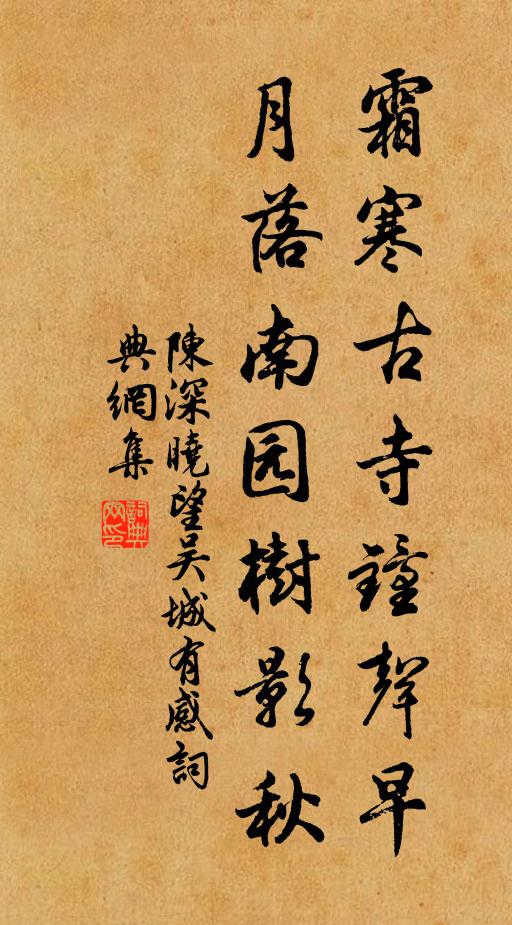 霜寒古寺鐘聲早
月落南园樹影秋
陳深曉望吴城有感詞
典網集
詞典网印